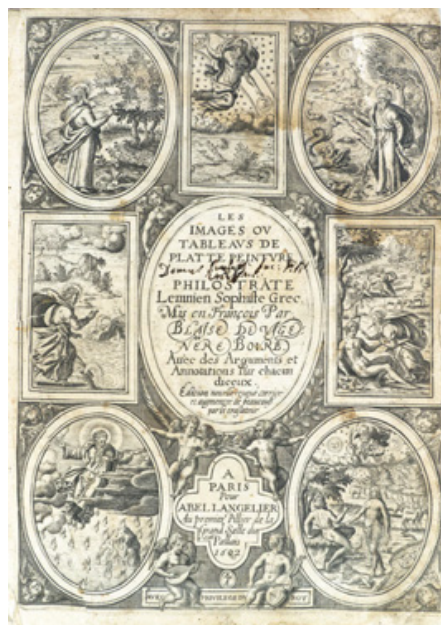 LES
IMAGES OV
TABLEAVS DE
PLATTE PEINTVRE
PHILOSTRATE
Lemnien Sophiste Grec
Mis en François Par
BLAISE DE VIGE
NERE BOVRB
Auec des Arguments et
Annotations sur chacun
diceux.
Edition nouuelle
et augmentee de beaucoup
A
PARIS
Pour
ABEL LANGELIER
Au premier Pillier de la
Grand Salle du
Pallais
1602
AVEC PRIVILEGE DV ROY